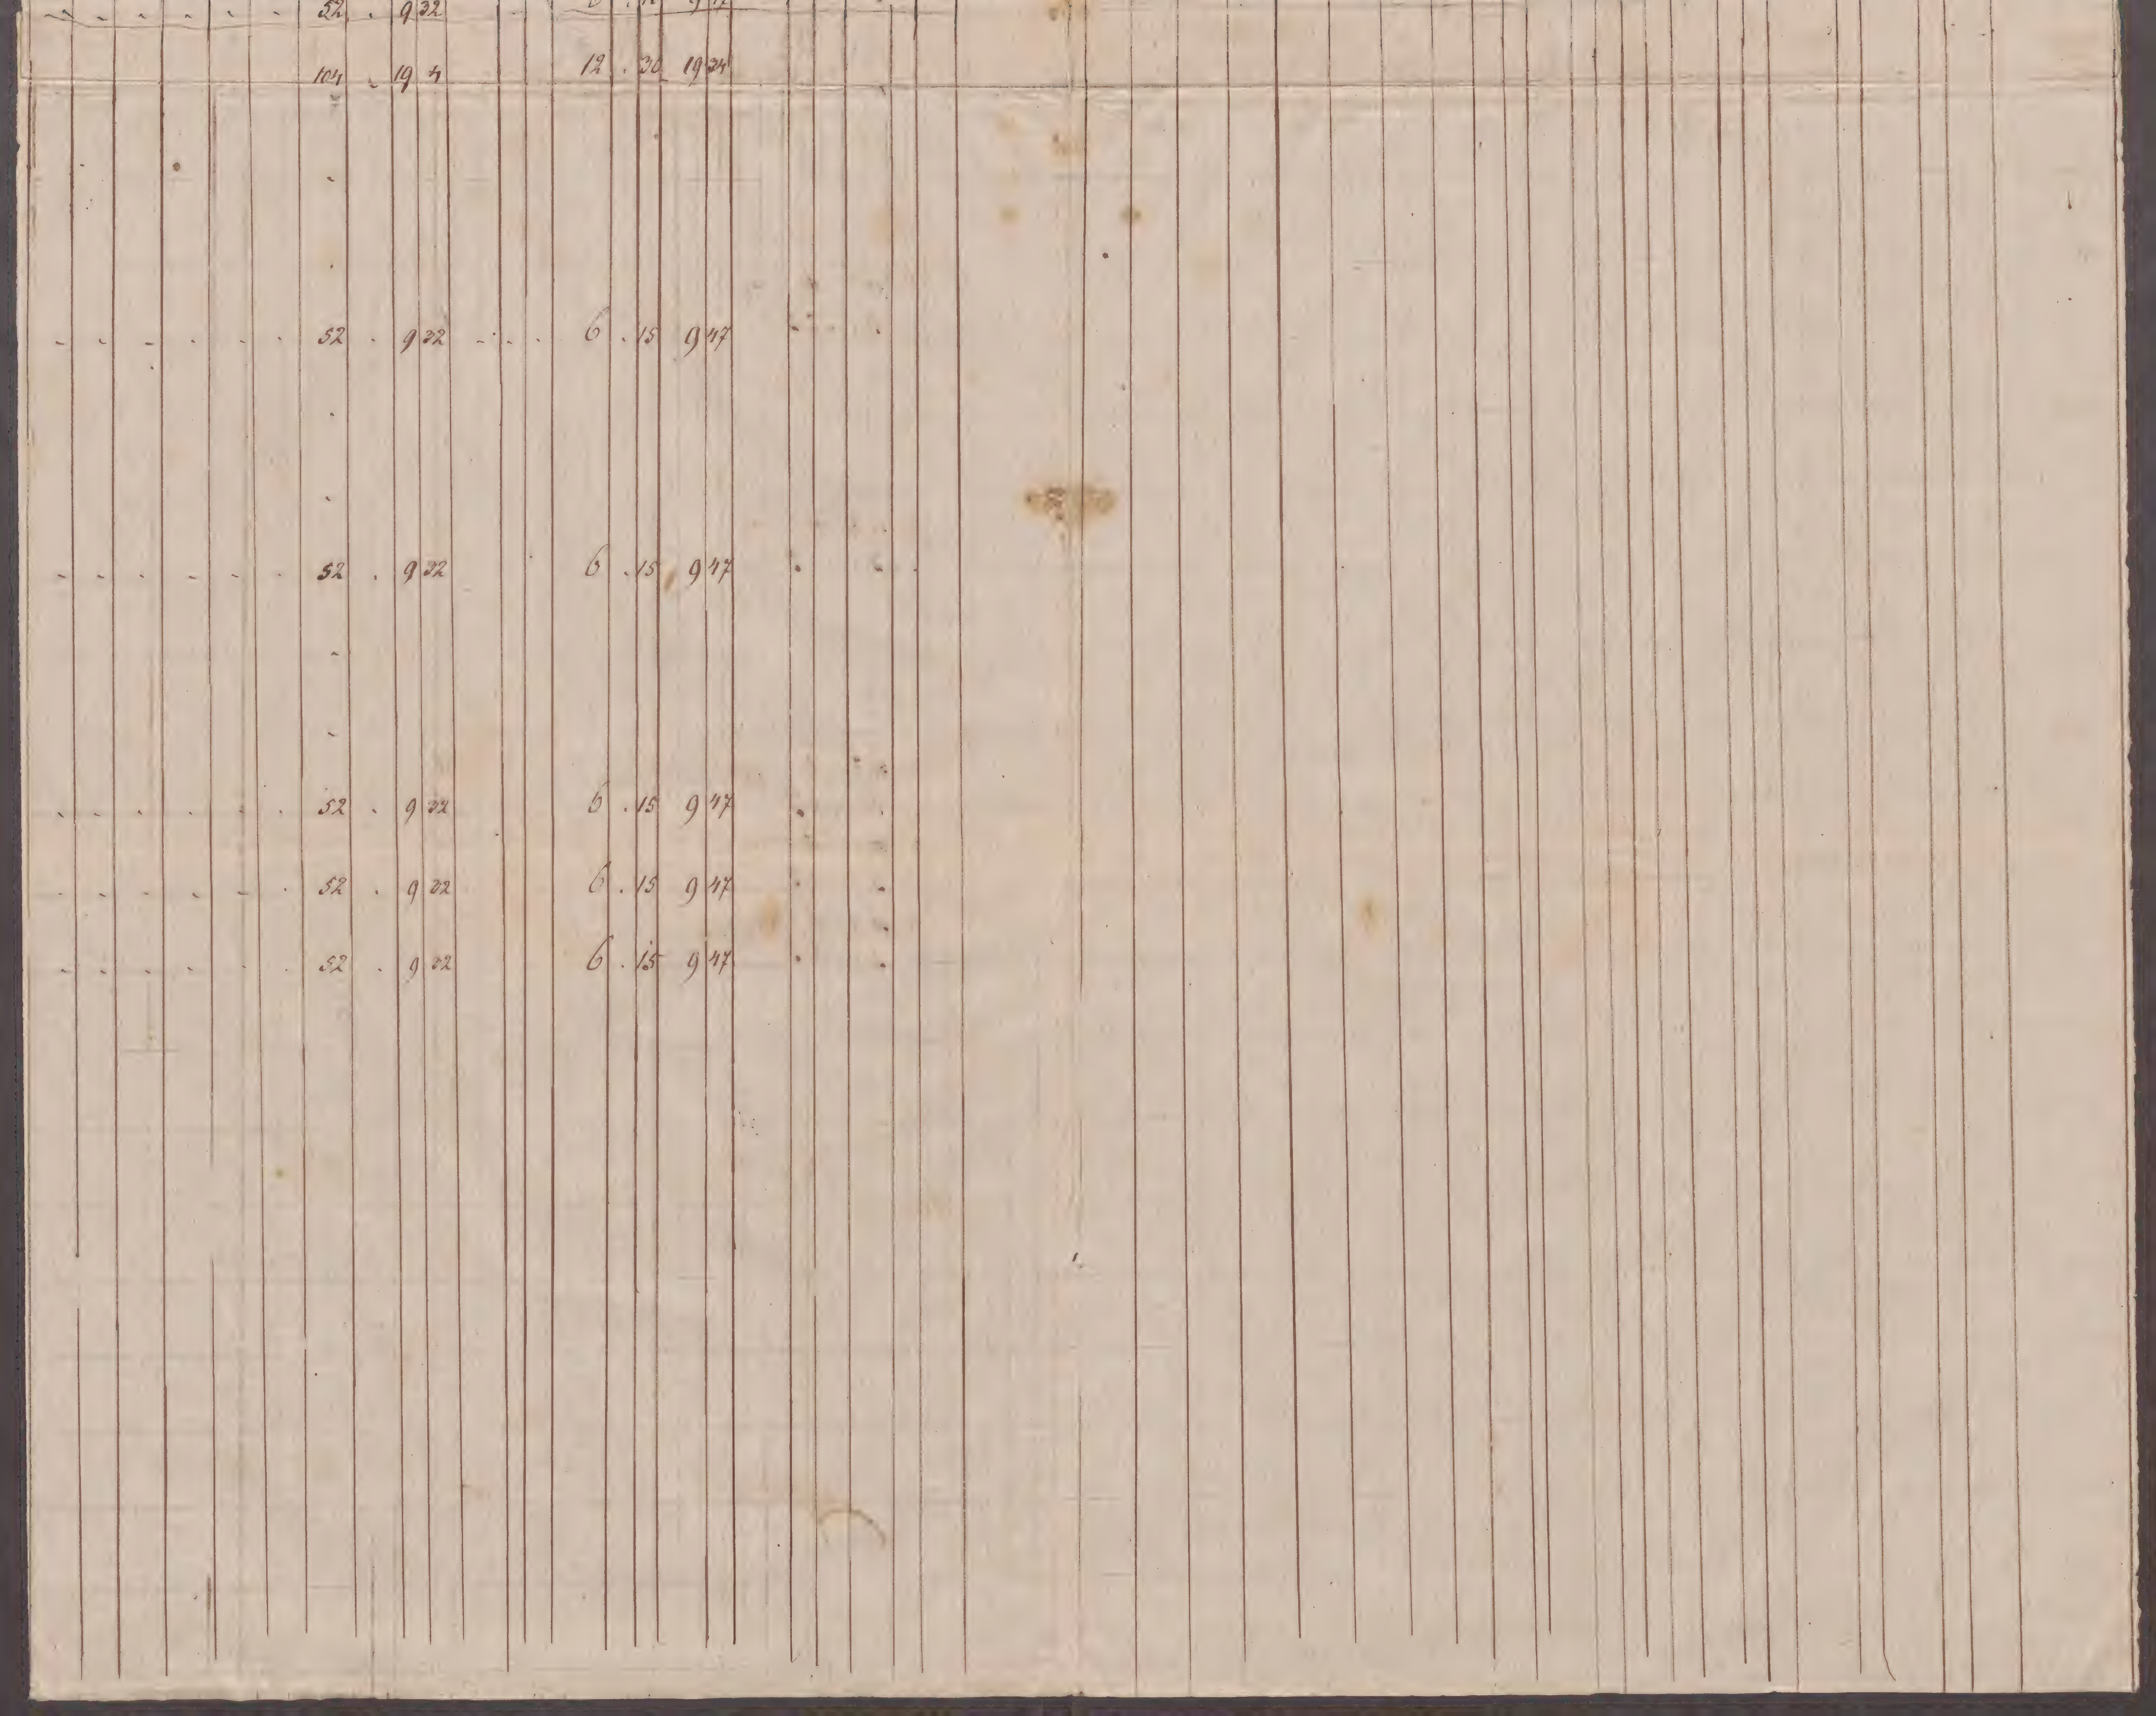 52 . 9 32 9 47
104 . 19 4 12 . 30 19 34
52 . 9 32 6 . 15 9 47
52 . 9 32 6 . 15 9 47
52 . 9 32 6 . 15 9 47
52 . 9 32 6 . 15 9 47
52 . 9 32 6 . 15 9 47